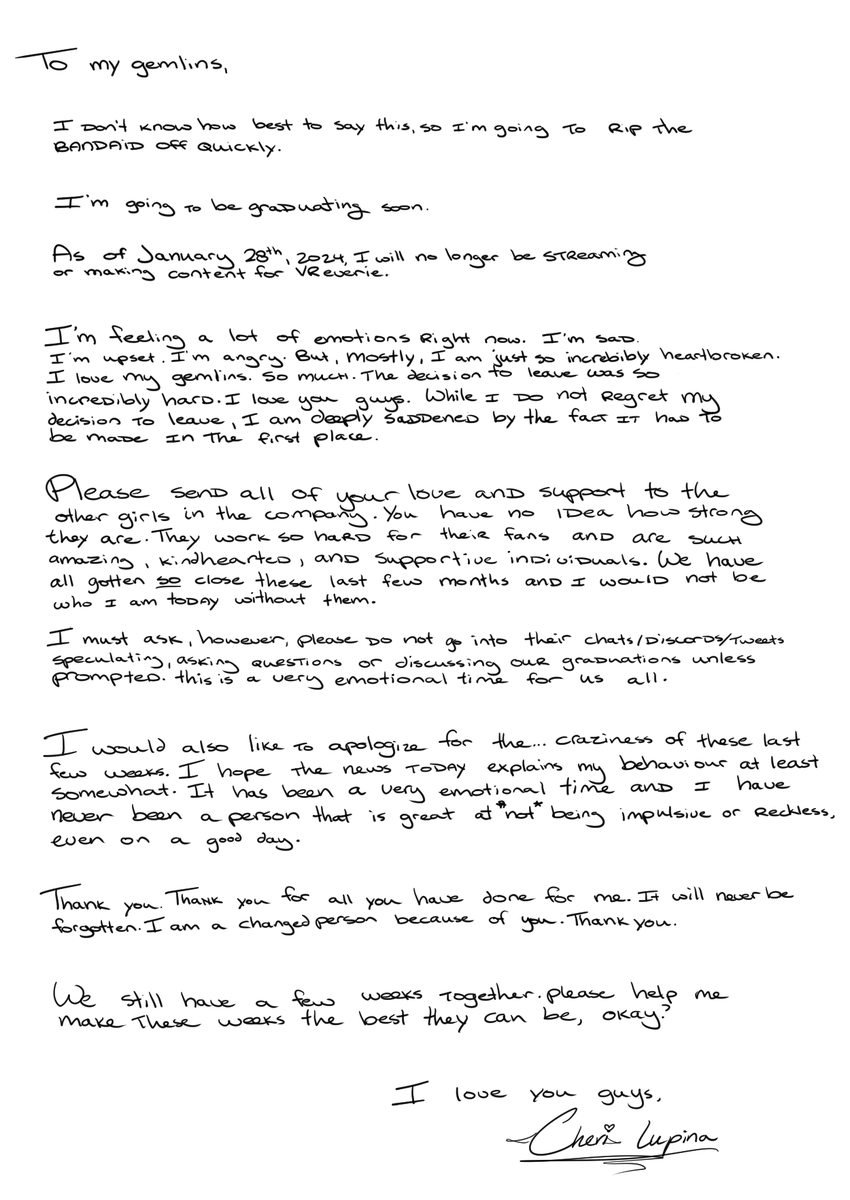 To my gemlins,
I don't know how best to say this, so I'm going to rip the
bandaid off quickly.
I'm going to be graduating soon.
As of January 28th, 2024, I will no longer be streaming
or making content for VReverie.
I'm feeling a lot of emotions right now. I'm sad.
I'm upset. I'm angry. But, mostly, I am just so incredibly heartbroken.
I love my gemlins. So much. The decision to leave was so
incredibly hard. I love you guys. While I do not regret my
decision to leave, I am deeply saddened by the fact it has to
be made in the first place.
Please send all of your love and support to the
other girls in the company. You have no idea how strong
they are. They work so hard for their fans and are such
amazing, kindhearted, and supportive individuals. We have
all gotten so close these last few months and I would not be
who I am today without them.
I must ask, however, please do not go into their chats/discords/tweets
speculating, asking questions or discussing our graduations unless
prompted. this is a very emotional time for us all.
I would also like to apologize for the... craziness of these last
few weeks. I hope the news today explains my behaviour at least
somewhat. It has been a very emotional time and I have
never been a person that is great at *not* being impulsive or reckless,
even on a good day.
Thank you. Thank you for all you have done for me. It will never be
forgotten. I am a changed person because of you. Thank you.
We still have a few weeks together. please help me
make these weeks the best they can be, okay?
I love you guys,
Cheri Lupina